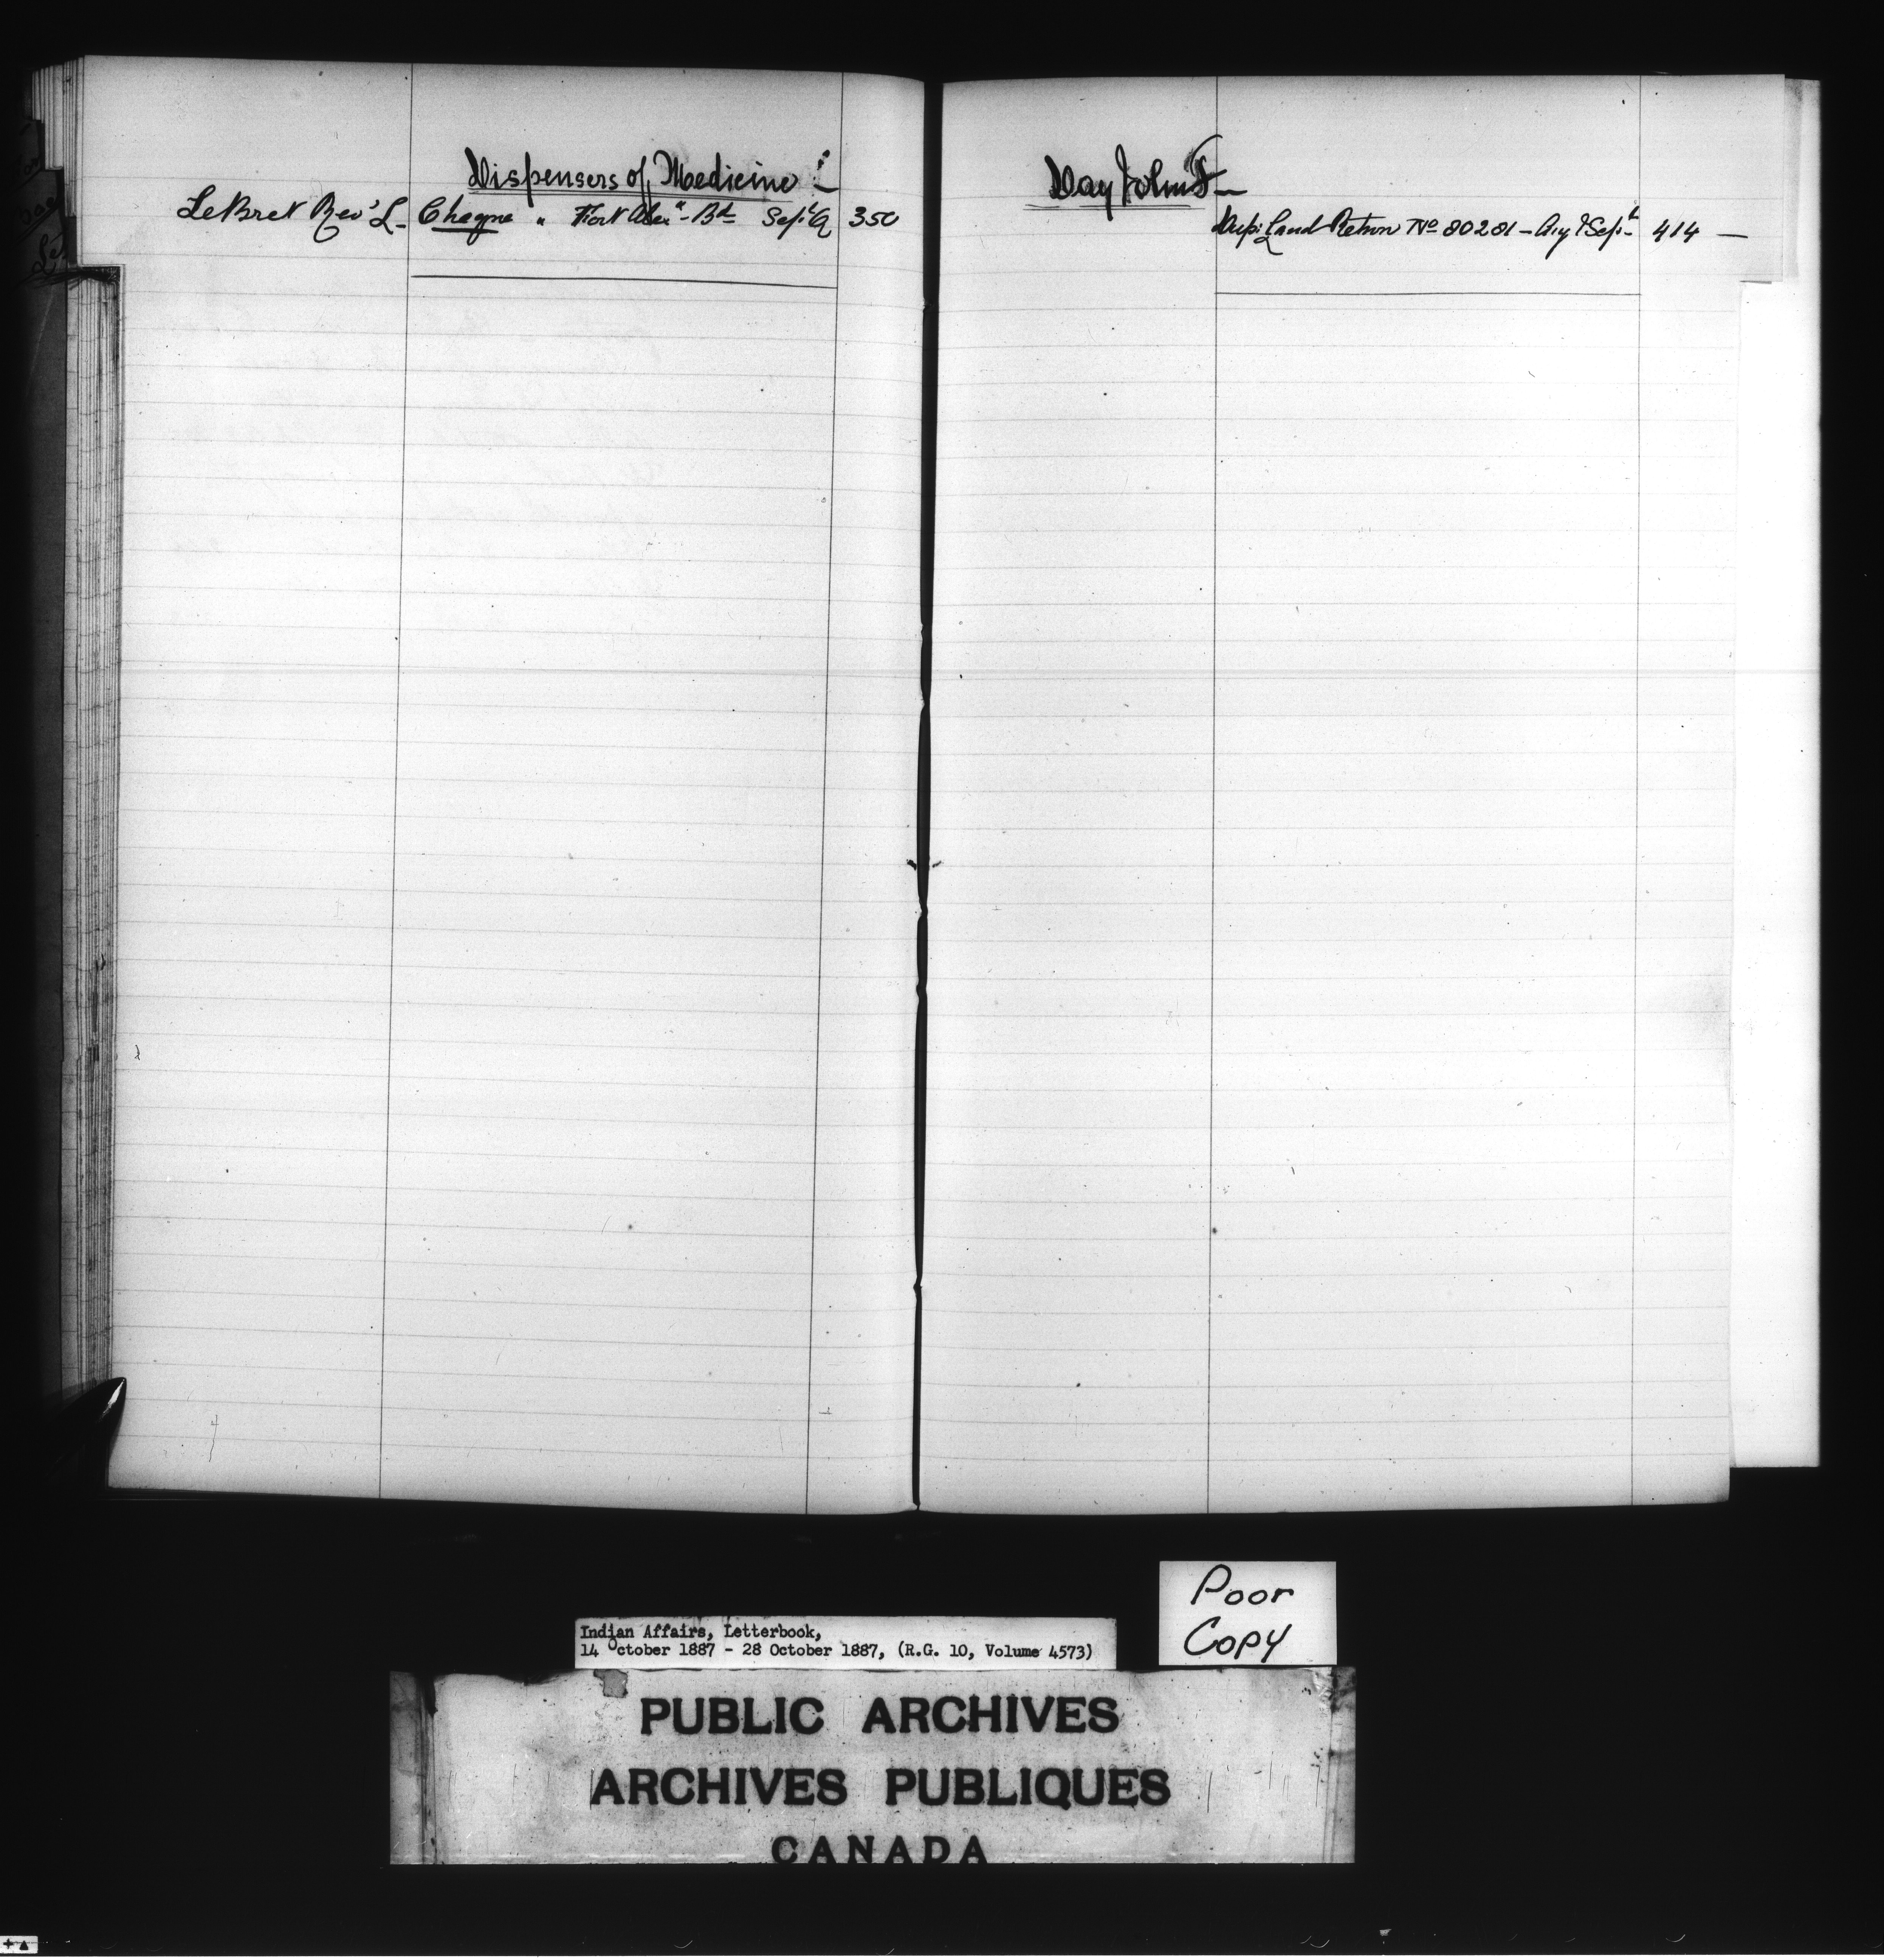 Dispensers of Medicine :-
LeBret Rev'd L- Cheque " Fort Alexr - Bd Sept Q 350
Day John F-
Dup: Land Return No 80281 - Aug & Sept 414 -
Indian Affairs, Letterbook,
14 October 1887 - 28 October 1887, (R.G. 10, Volume 4573)
Poor
Copy
PUBLIC ARCHIVES
ARCHIVES PUBLIQUES
CANADA